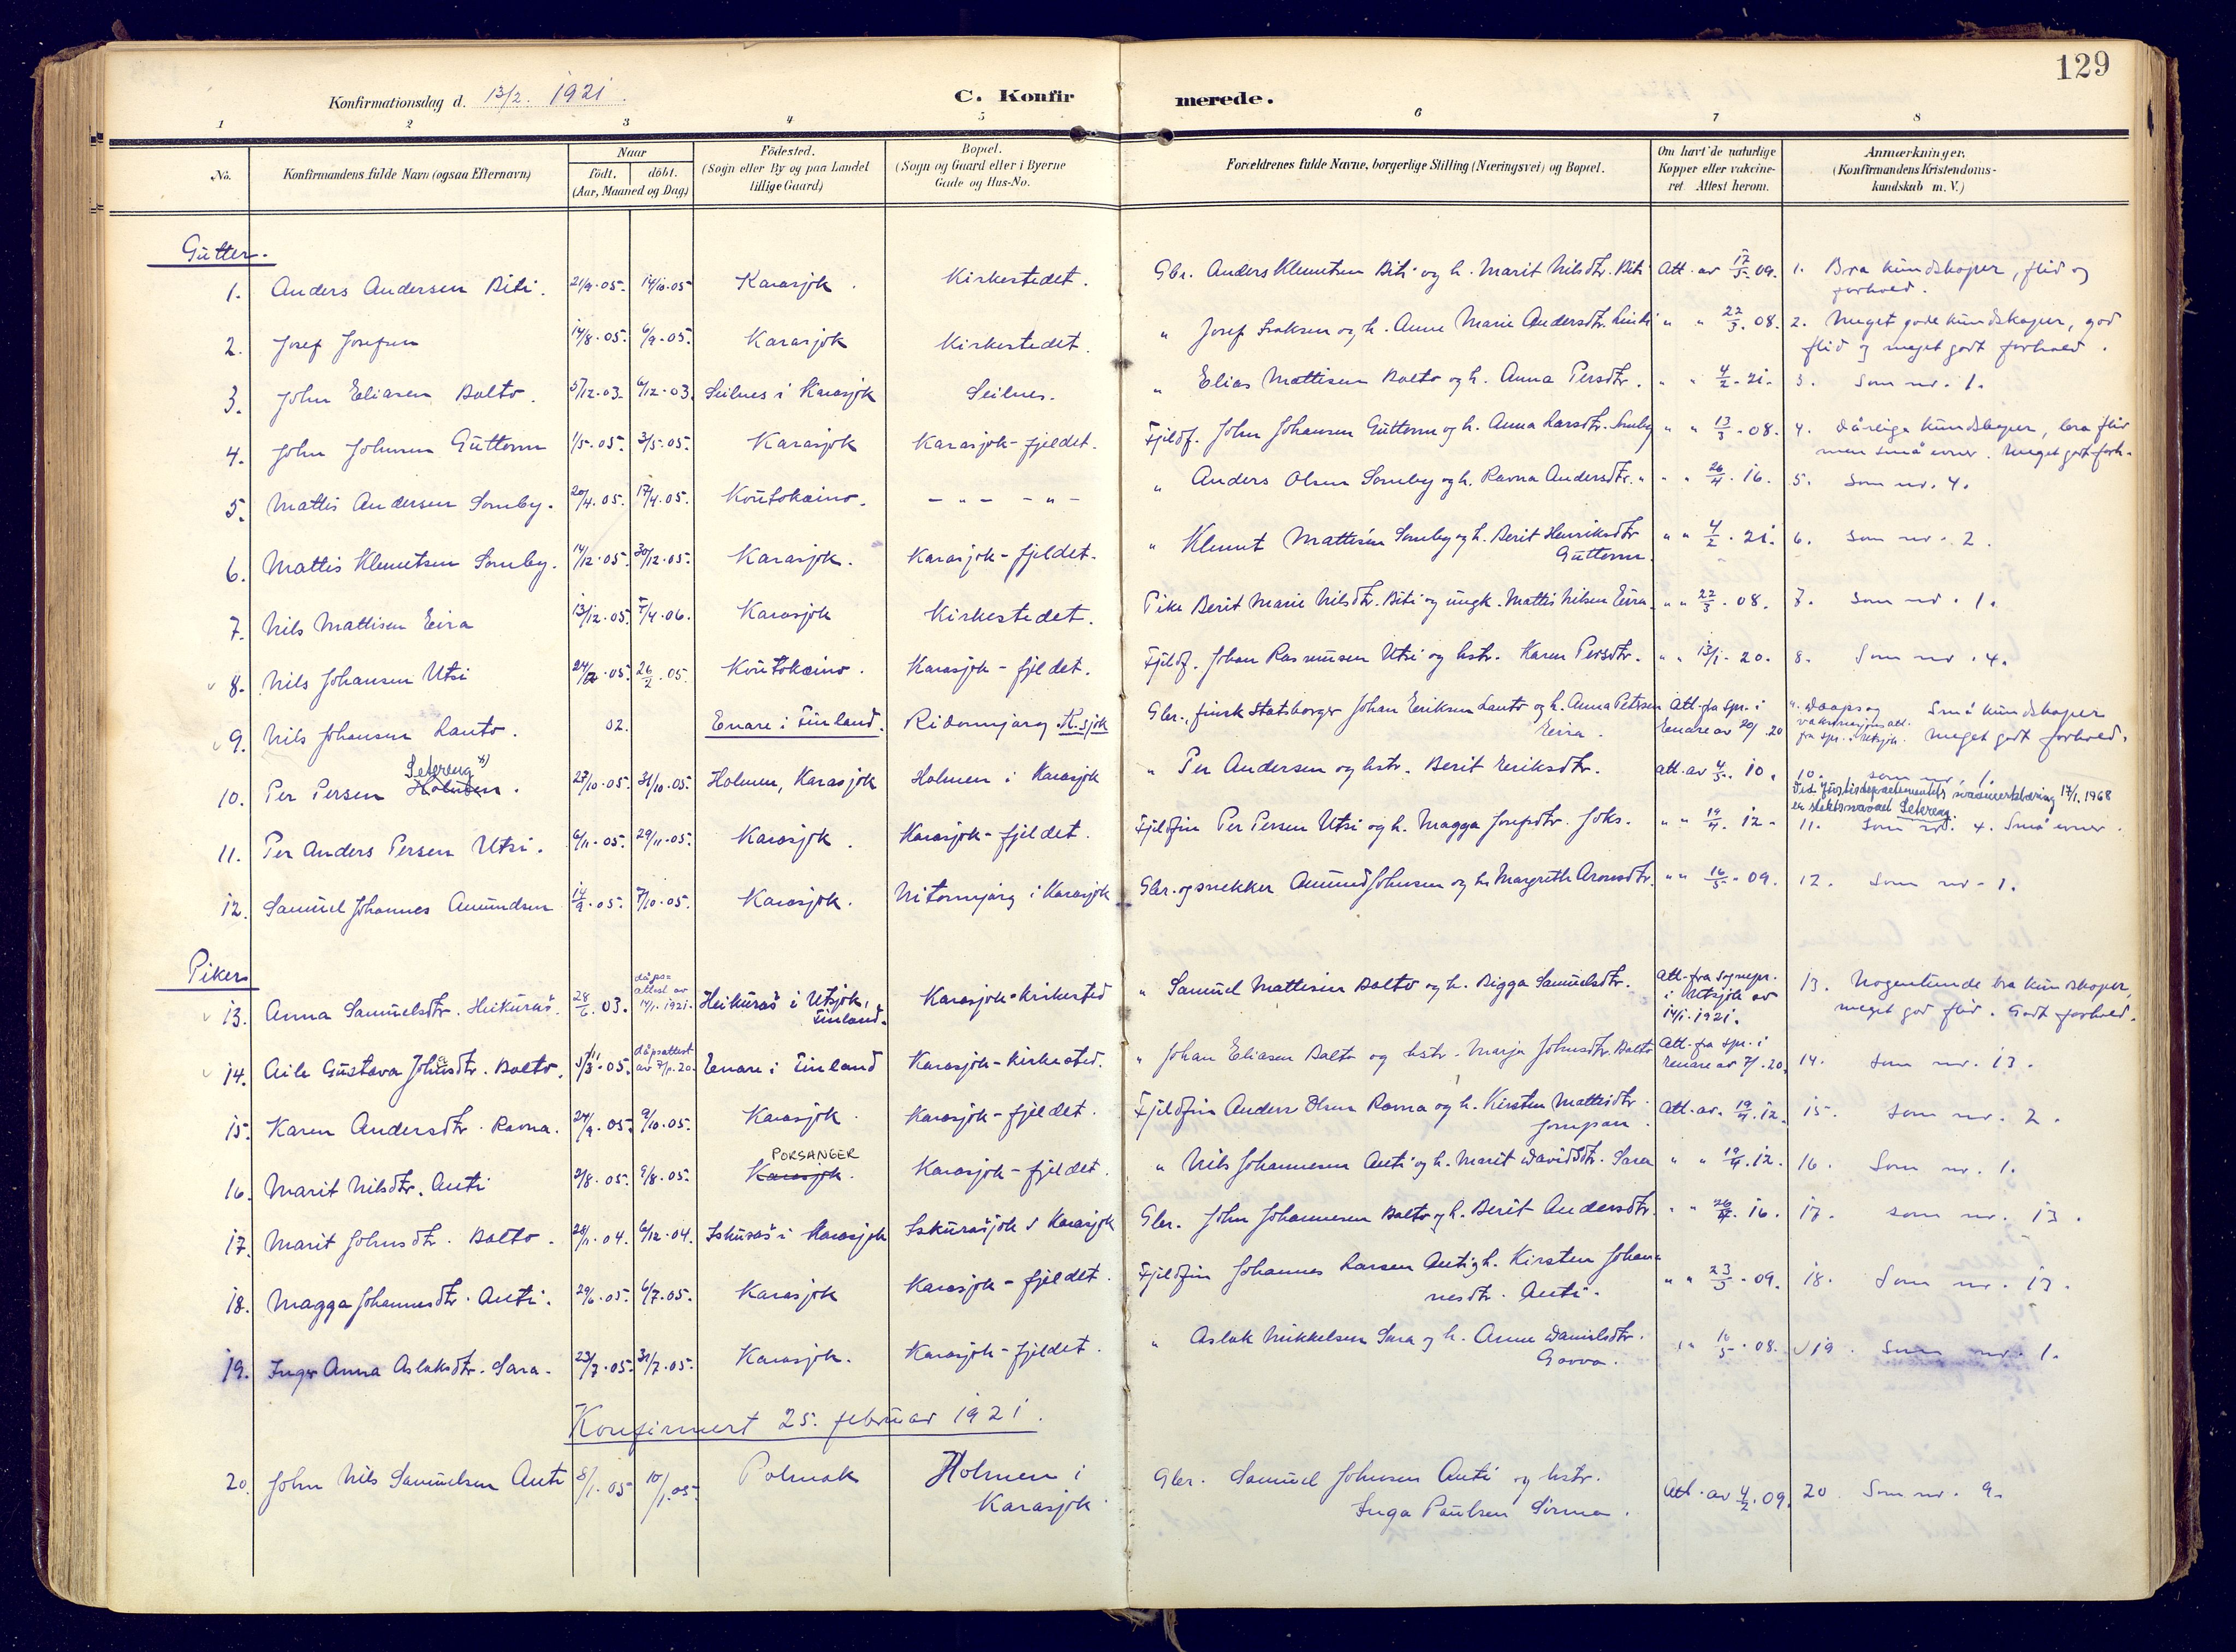 129
Konfirmationsdag d. 13/2. 1921.
C. Konfirmerede.
1 2 3 4 5 6 7 8
No.
Konfirmandens fulde Navn (ogsaa Efternavn)
Naar
födt. döbt.
(Aar, Maaned og Dag)
Födested.
(Sogn eller By og paa Landet
tillige Gaard)
Bopæl.
(Sogn og Gaard eller i Byerne
Gade og Hus-No.
Forældrenes fulde Navne, borgerlige Stilling (Næringsvei) og Bopæl.
Om havt de naturlige
Kopper eller vakcine-
ret Attest herom.
Anmærkninger.
(Konfirmandens Kristendoms-
kundskab m. V.)
Gutter.
1. Anders Andersen Biti. 21/9.05. 14/10.05 Karasjok. Kirkestedet. Gbr. Anders Klemetsen Biti og h. Marit Nilsdtr. Biti Att. av 17/5.09. 1. Bra kundskaper, flid og
forhold.
2. Josef Josefsen 14/8.05. 6/9.05. Karasjok Kirkestedet. " Josef Isaksen og h. Anne Marie Andersdtr. " " 22/3.08. 2. Meget gode kundskaper, god
flid og meget godt forhold.
3. John Eliasen Balto. 5/12.03. 6/12.03. Seilnes i Karasjok Seilnes. " Elias Mattisen Balto og h. Anna Persdtr. " " 4/2.21. 3. Som nr. 1.
4. John Johnsen Guttorm 1/5.05. 3/5.05. Karasjok Karasjok-fjeldet. Fjeldf. John Johansen Guttorm og h. Anna Larsdtr. Somby " " 13/3.08. 4. Dårlige kundskaper, bra flid
men små evner. Meget godt forh.
5. Mattis Andersen Somby. 20/4.05. 17/4.05. Koutokeino. - " - - " - " Anders Olsen Somby og h. Ravna Andersdtr. " " " 26/4.16. 5. Som nr. 4.
6. Mattis Klemetsen Somby. 14/12.05. 30/12.05. Karasjok. Karasjok-fjeldet. " Klemet Mattisen Somby og h. Berit Henriksdtr. " " 4/2.21. 6. Som nr. 2.
Guttorm.
7. Nils Mattisen Eira 13/12.05. 7/4.06. Karasjok Kirkestedet. Pike Berit Marie Nilsdtr. Biti og ungk. Mattis Nilsen Eira. " " 22/3.08. 7. Som nr. 1.
8. Nils Johansen Utsi 24/2.05. 26/2.05. Koutokeino. Karasjok-fjeldet. Fjeldf. Johan Rasmusen Utsi og hstr. Karen Persdtr. " " 13/1.20. 8. Som nr. 4.
9. Nils Johansen Lanto. 02. Enare i Finland. Ridonnjarg K.sjok Gbr., finsk Statsborger Johan Eriksen Lanto og h. Anna Petersen Att. fra spr. i ". Daaps og Små kundskaper
Eira. Enare av 20/ .20 vaksinasjonsatt. Meget godt forhold.
fra spr. i Utsjok.
Setereng *)
10. Per Persen Holmen. 27/10.05. 31/10.05. Holmen, Karasjok Holmen i Karasjok " Per Andersen og hstr. Berit Eriksdtr. att. av 4/3.10. 10. som nr. 1.
Ved Justisdepartementets navneerklæring 17/1.1968
er slektsnavnet Setereng.
11. Per Anders Persen Utsi. 6/11.05. 29/11.05. Karasjok. Karasjok-fjeldet. Fjeldfin Per Persen Utsi og h. Magga Josepsdtr. Joks. " " 19/4.12. 11. Som nr. 4. Små evner.
12. Samuel Johannes Amundsen 14/9.05. 7/10.05. Karasjok. Nitomnjarg i Karasjok Gbr. og snekker Amund Johnsen og h. Margreth Aronsdtr. " " 16/5.09. 12. Som nr. 1.
Piker
13. Anna Samuelsdtr. Heikuras. 28/6.03. dåps-
attest av
14/1.1921. Heikuras i Utsjok,
Finland. Karasjok-kirkested " Samuel Mattisen Balto og h. Bigga Samuelsdtr. Att. fra Sognepr.
i Utsjok av
14/1.1921. 13. Nogenlunde bra kundskaper,
meget god flid. Godt forhold.
14. Aile Gustava Johansdtr. Balto. 05. dåpsattest
av 7/1.20. Enare i Finland Karasjok-kirkested. " Johan Eliasen Balto og hstr. Marja Johnsdtr. Balto Att. fra spr. i
Enare av 7/ .20. 14. Som nr. 13.
15. Karen Andersdtr. Ravna. 24/9.05. 9/10.05. Karasjok. Karasjok-fjeldet. Fjeldfin Anders Olsen Ravna og h. Kirsten Mattisdtr. Att. av. 19/4.12. 15. Som nr. 2.
Jompan.
PORSANGER
16. Marit Nilsdtr. Anti 2/8.05. 9/8.05. Karasjok. Karasjok-fjeldet. " Nils Johannesen Anti og h. Marit Davidsdtr. Sara " " 19/4.12. 16. Som nr. 1.
17. Marit Johnsdtr. Balto. 28/11.04. 6/12.04. Iskuras i Karasjok Iskurasjok i Karasjok Gbr. John Johannesen Balto og h. Berit Andersdtr. " " 26/4.16. 17. Som nr. 13.
18. Magga Johannesdtr. Anti. 29/6.05. 6/7.05. Karasjok Karasjok-fjeldet. Fjeldfin Johannes Larsen Anti og h. Kirsten Johan-
nesdtr. Anti. " " 23/3.09. 18. Som nr. 13.
19. Inger Anna Aslaksdtr. Sara. 23/7.05. 31/7.05. Karasjok. Karasjok-fjeldet. " Aslak Mikkelsen Sara og h. Anne Danielsdtr.
Gavva. " " 16/5.08. 19. Som nr. 1.
Konfirmert 25. februar 1921.
20. John Nils Samuelsen Anti 8/1.05 10/1.05. Polmak Holmen i
Karasjok. Gbr. Samuel Johnsen Anti og hstr.
Inga Paulsen Sirma. Att. av 4/2.09. 20. Som nr. 9.